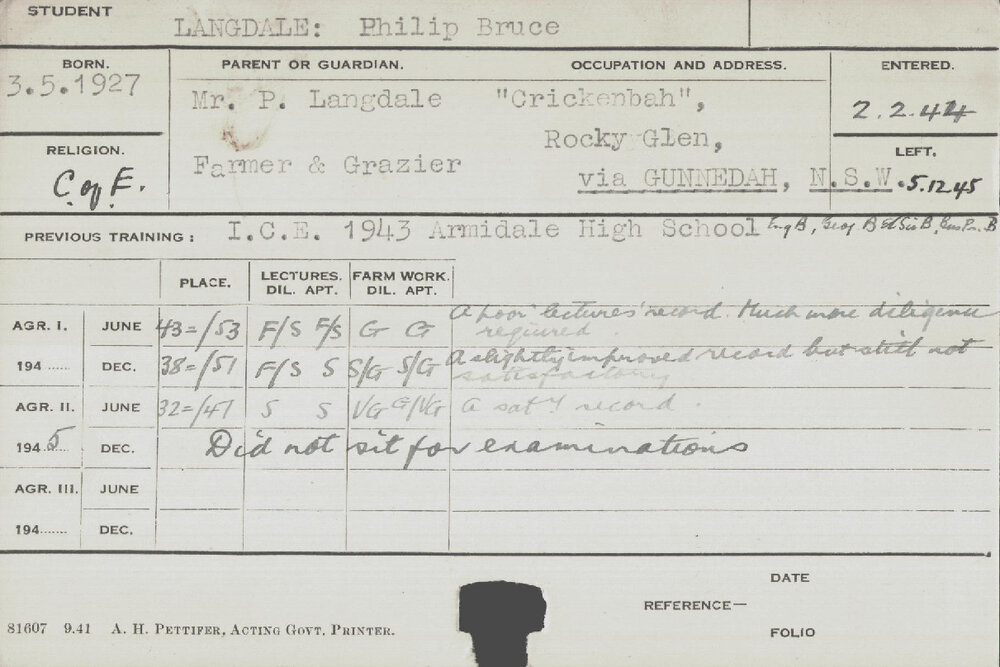 STUDENT
LANGDALE: Philip Bruce
BORN. PARENT OR GUARDIAN. OCCUPATION AND ADDRESS. ENTERED.
3.5.1927 Mr. P. Langdale "Crickenbah", 2.2.44
Rocky Glen,
RELIGION. Farmer & Grazier LEFT.
C of E. via GUNNEDAH, N.S.W. 5.12.45
PREVIOUS TRAINING: I.C.E. 1943 Armidale High School Eng B, Geog B El Sci B, Bus Pr. B
PLACE. LECTURES. FARM WORK.
DIL. APT. DIL. APT.
AGR. I. JUNE 43=/53 F/S F/S G G A poor 'lectures' record. Much more diligence
required.
194...... DEC. 38=/51 F/S S S/G S/G A slightly improved record but still not
satisfactory
AGR. II. JUNE 32=/47 S S VG G/VG A sat y record.
1945 DEC. Did not sit for examinations
AGR. III. JUNE
194....... DEC.
DATE
REFERENCE—
FOLIO
81607 9.41 A. H. PETTIFER, ACTING GOVT. PRINTER.